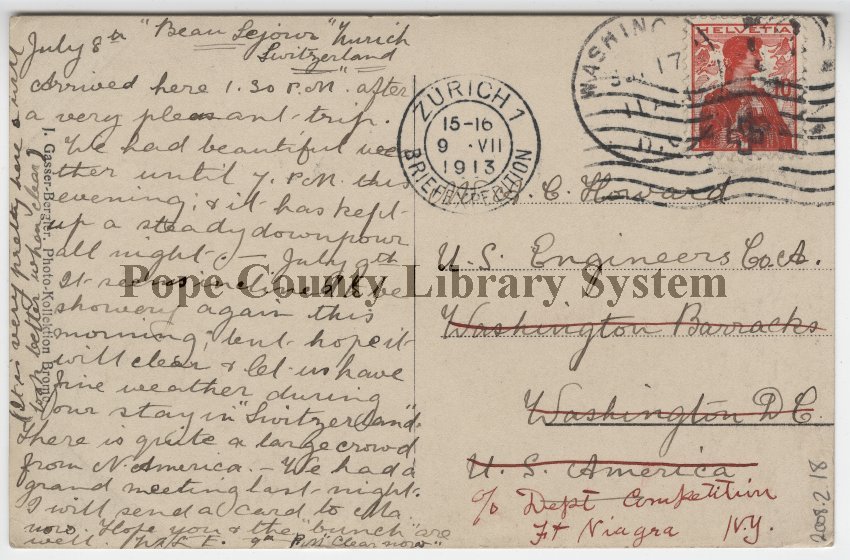 July 8th "Beau Sejour" Zurich
Switzerland
Arrived here 1.30 P.M. after
a very pleasant trip.
We had beautiful wea
ther until 7. P.M. this
evening; & it has kept
up a steady downpour
all night. – July 9th
It seems inclined to be
showery again this
morning; but hope it
will clear & let us have
fine weather during
our stay in "Switzerland".
There is quite a large crowd
from N. America. – We had a
grand meeting last night.
I will send a card to Ma
now. Hope you & the "bunch" are
well. 9th P.M. "Clear now"
(It is very pretty here & will
look better when clear)
J. Gasser-Bergler, Photo-Kollektion
ZÜRICH 1
15-16
9 · VII
1913
BRIEFEXPEDITION
WASHING
17
D.C.
HELVETIA
10
C. Howard
U.S. Engineers Co. A.
Washington Barracks
Washington D.C.
U.S. America
c/o Dept Competition
Ft Niagra N.Y.
Pope County Library System
2008.2.18